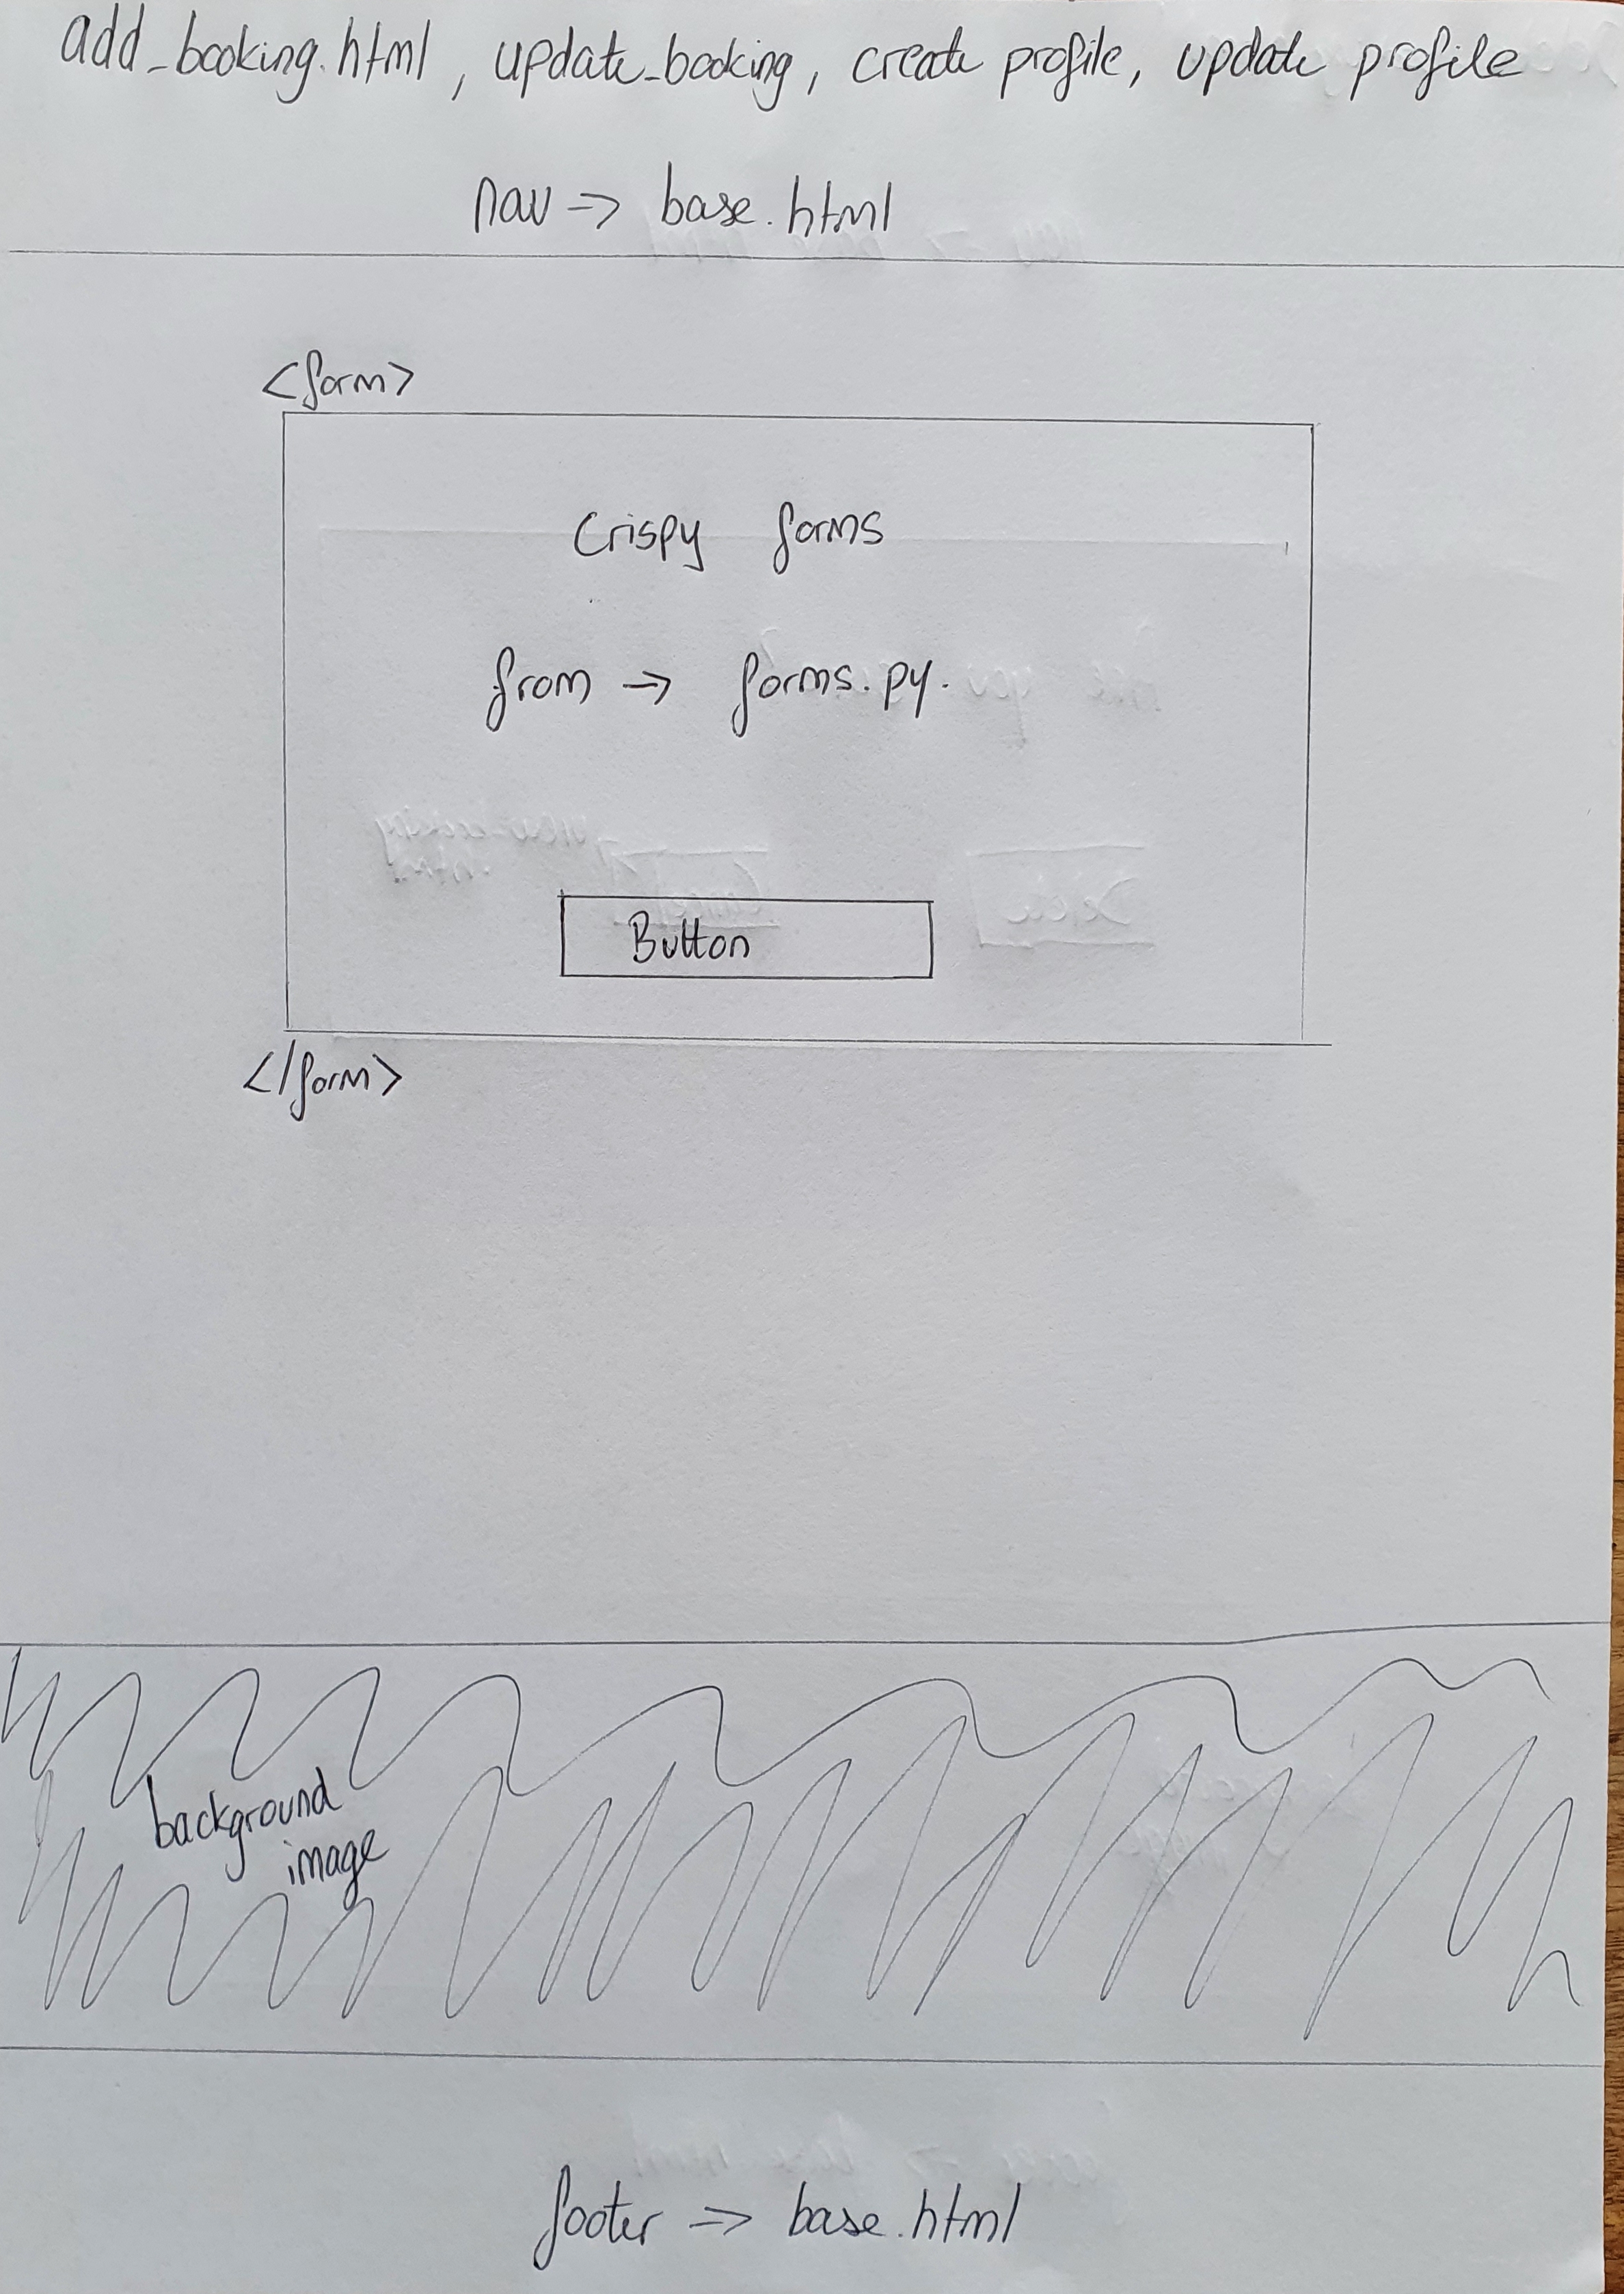 add_booking.html, update_booking, create profile, update profile
nav => base.html
<form>
Crispy forms
from -> forms.py.
Button
</form>
background
image
footer => base.html